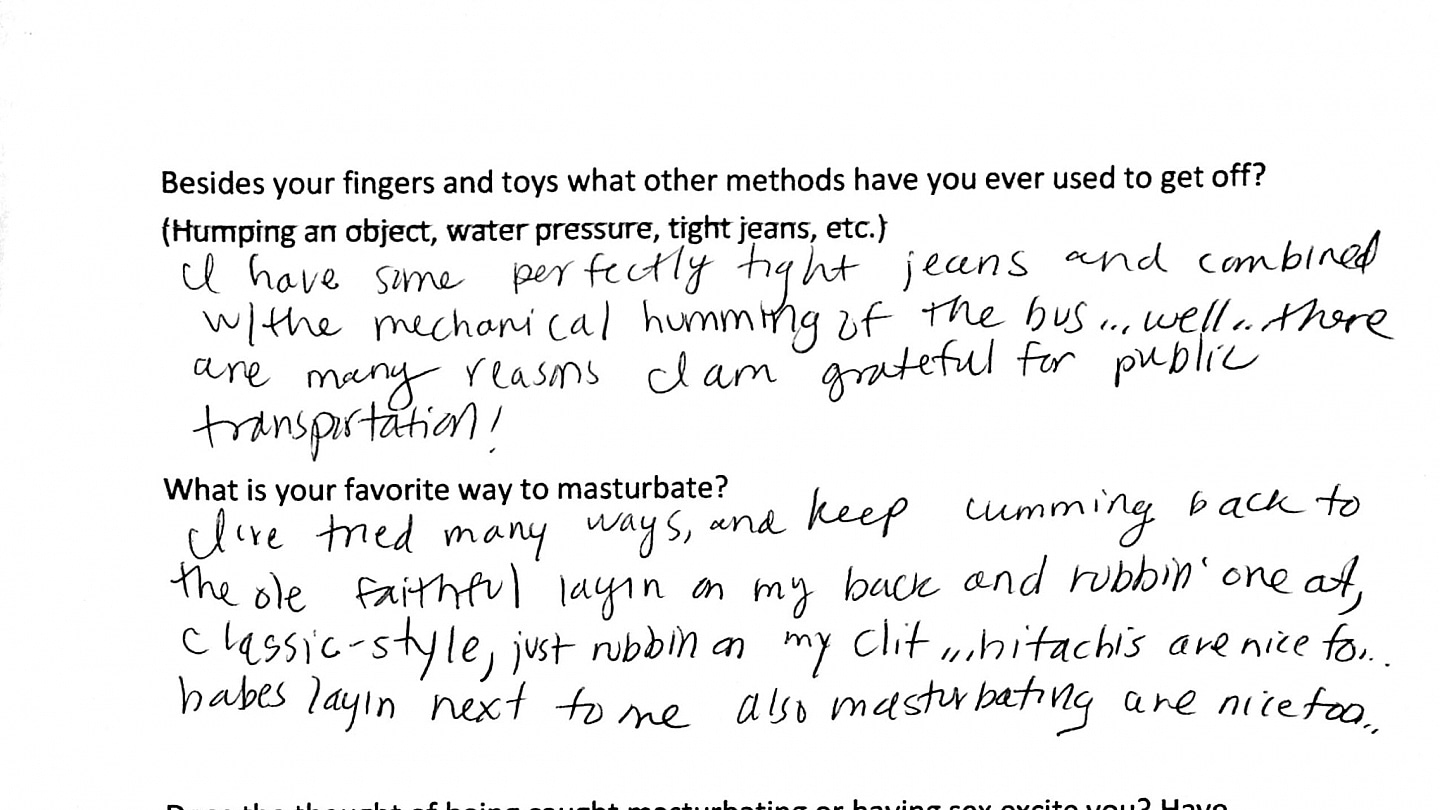 Besides your fingers and toys what other methods have you ever used to get off?
(Humping an object, water pressure, tight jeans, etc.)
I have some perfectly tight jeans and combined
w/the mechanical humming of the bus... well.. there
are many reasons I am grateful for public
transportation!
What is your favorite way to masturbate?
I've tried many ways, and keep cumming back to
the ole faithful layin on my back and rubbin' one at,
classic-style, just rubbin on my clit ,,,hitachis are nice to...
babes layin next to me also masturbating are nice too..
Does the thought of being caught masturbating or having sex excite you? Have